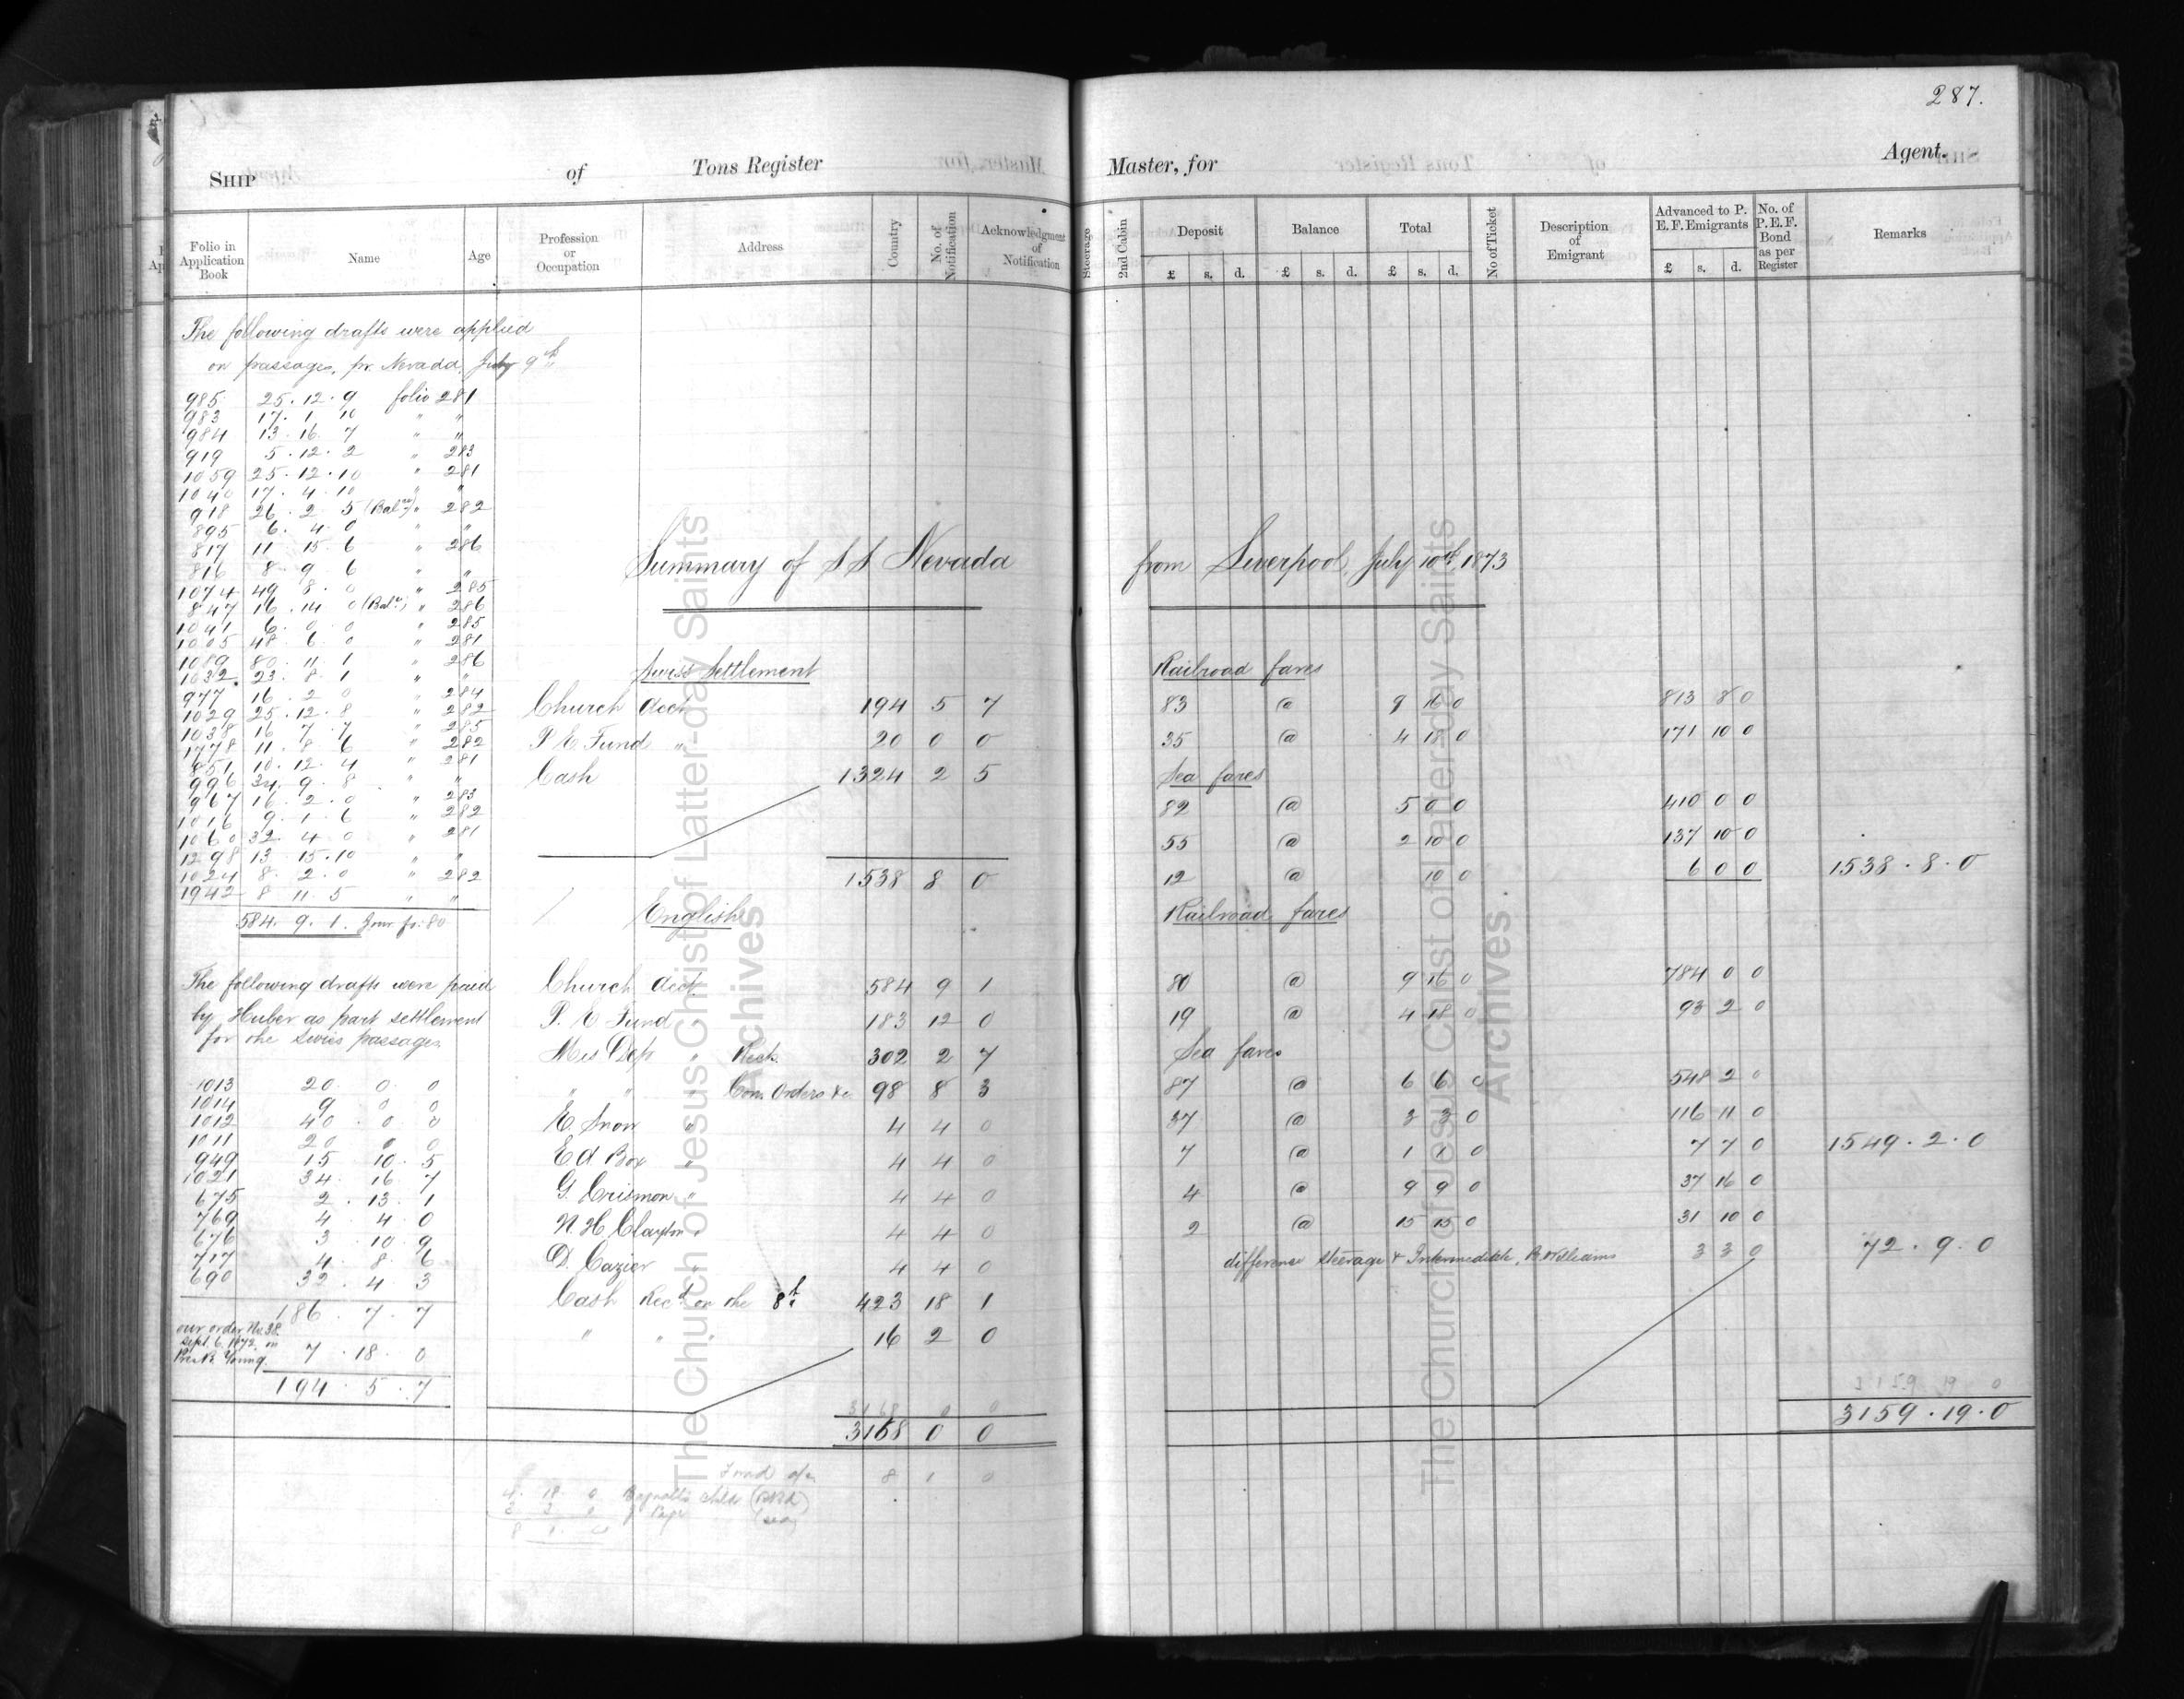 287.
SHIP of Tons Register Master, for Agent.
Folio in Application Book Name Age Profession or Occupation Address Country No. of Notification Acknowledgment of Notification
Steerage 2nd Cabin Deposit £ s. d. Balance £ s. d. Total £ s. d. No of Ticket Description of Emigrant Advanced to P. E. F. Emigrants £ s. d. No. of P. E. F. Bond as per Register Remarks
The following drafts were applied
on passages, pr. Nevada, July 9th
985 25. 12. 9 folio 281
983 17. 1. 10 " "
984 13. 16. 7 " "
919 5. 12. 2 " 283
1059 25. 12. 10 " 281
1040 17. 4. 10 " "
918 26. 2. 5 (Balce) " 282
895 6. 4. 0 " "
817 11 15. 6 " 286
816 8. 9. 6 " "
1074 49 8. 0 " 285
847 16. 14 0 (Balce) " 286
1041 6. 0. 0 " 285
1005 48. 6. 0 " 281
1089 80. 11. 1 " 286
1032. 23. 8. 1 " "
977 16. 2 0 " 284
1029 25. 12. 8 " 282
1038 16 7. 7 " 285
1778 11. 8 6 " 282
851 10. 12. 4 " 281
996 34. 9. 8 " "
967 16. 2. 0 " 283
1016 9. 1. 6 " 282
1060 32. 4. 0 " 281
1298 13 15. 10 " "
1024 8. 2. 0 " 282
1942 8 11. 5 " "
584. 9. 1. Jour fo: 80
The following drafts were paid
by Huber as part settlement
for the Swiss passages.
1013 20. 0. 0
1014 9 0 0
1012 40. 0. 0
1011 20 0 0
949 15 10. 5
1021 34. 16 7
675 2. 13. 1
769 4. 4. 0
676 3. 10. 9
717 4. 8. 6
690 32. 4. 3
186. 7. 7
our order No. 38
Sept. 6. 1872. on
Pres B. Young. 7. 18. 0
194. 5. 7
Summary of SS Nevada from Liverpool, July 10th, 1873
Swiss Settlement
Church Acct 194 5 7
P. E. Fund " 20 0 0
Cash 1324 2 5
1538 8 0
English
Church Acct. 584 9 1
P. E. Fund 183 12 0
Mis Dep " Rect. 302 2 7
" " " Con. Orders &c 98 8 3
E. Snow " 4 4 0
E A Box " 4 4 0
G. Crismon " 4 4 0
N. H. Clayton " 4 4 0
D. Cazier " 4 4 0
Cash Recd on the 8th 423 18 1
" " " 16 2 0
3168 0 0
3168 0 0
Fund 8 1 0
4. 18. 0 child
3 3 0 J Page (sea)
8 1. 0
Railroad fares
83 @ 9 16 0 813 8 0
35 @ 4 18 0 171 10 0
Sea fares
82 @ 5 0 0 410 0 0
55 @ 2 10 0 137 10 0
12 @ 10 0 6 0 0 1538. 8. 0
Railroad fares
80 @ 9 16 0 784 0 0
19 @ 4 18 0 93 2 0
Sea fares
87 @ 6 6 0 548 2 0
37 @ 3 3 0 116 11 0
7 @ 1 1 0 7 7 0 1549. 2. 0
4 @ 9 9 0 37 16 0
2 @ 15 15 0 31 10 0
difference steerage & Intermediate, B. Williams 3 3 0 72. 9. 0
3159 19 0
3159. 19. 0
The Church of Jesus Christ of Latter-day Saints
Archives
The Church of Jesus Christ of Latter-day Saints
Archives